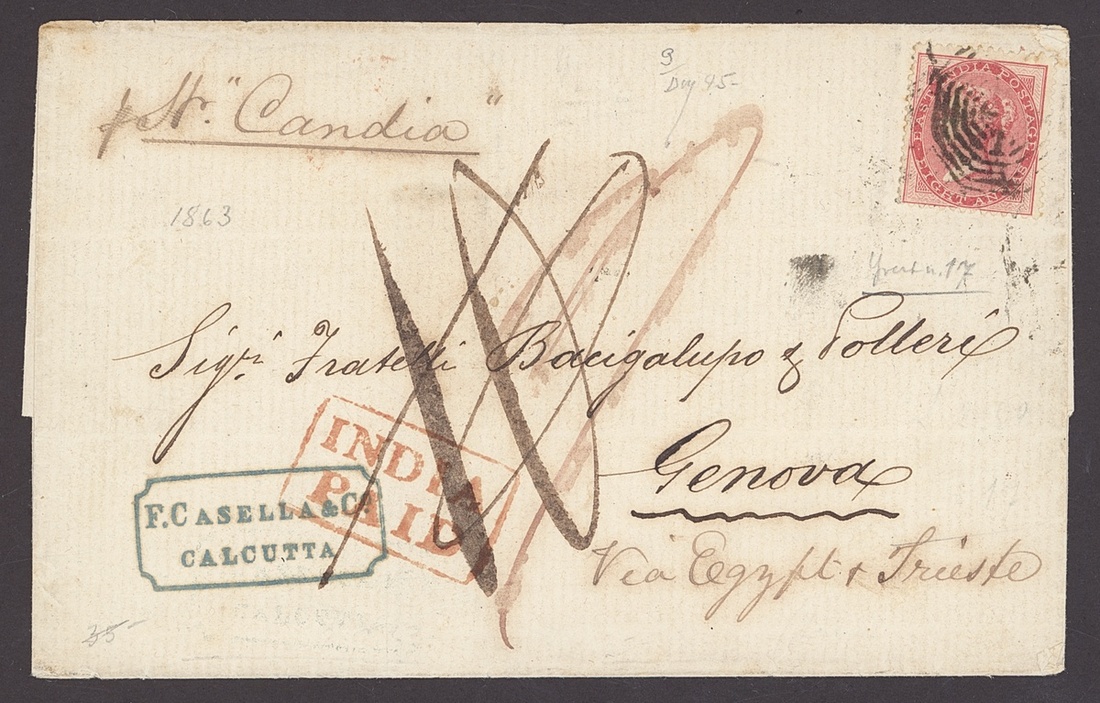 p Str. "Candia"
EAST INDIA POSTAGE
EIGHT ANNAS
1863
Yvert n. 17
Sigri. Fratelli Bacigalupo & Polleri
Genova
Via Egypt & Trieste
INDIA
PAID
F. CASELLA & Co.
CALCUTTA
35-